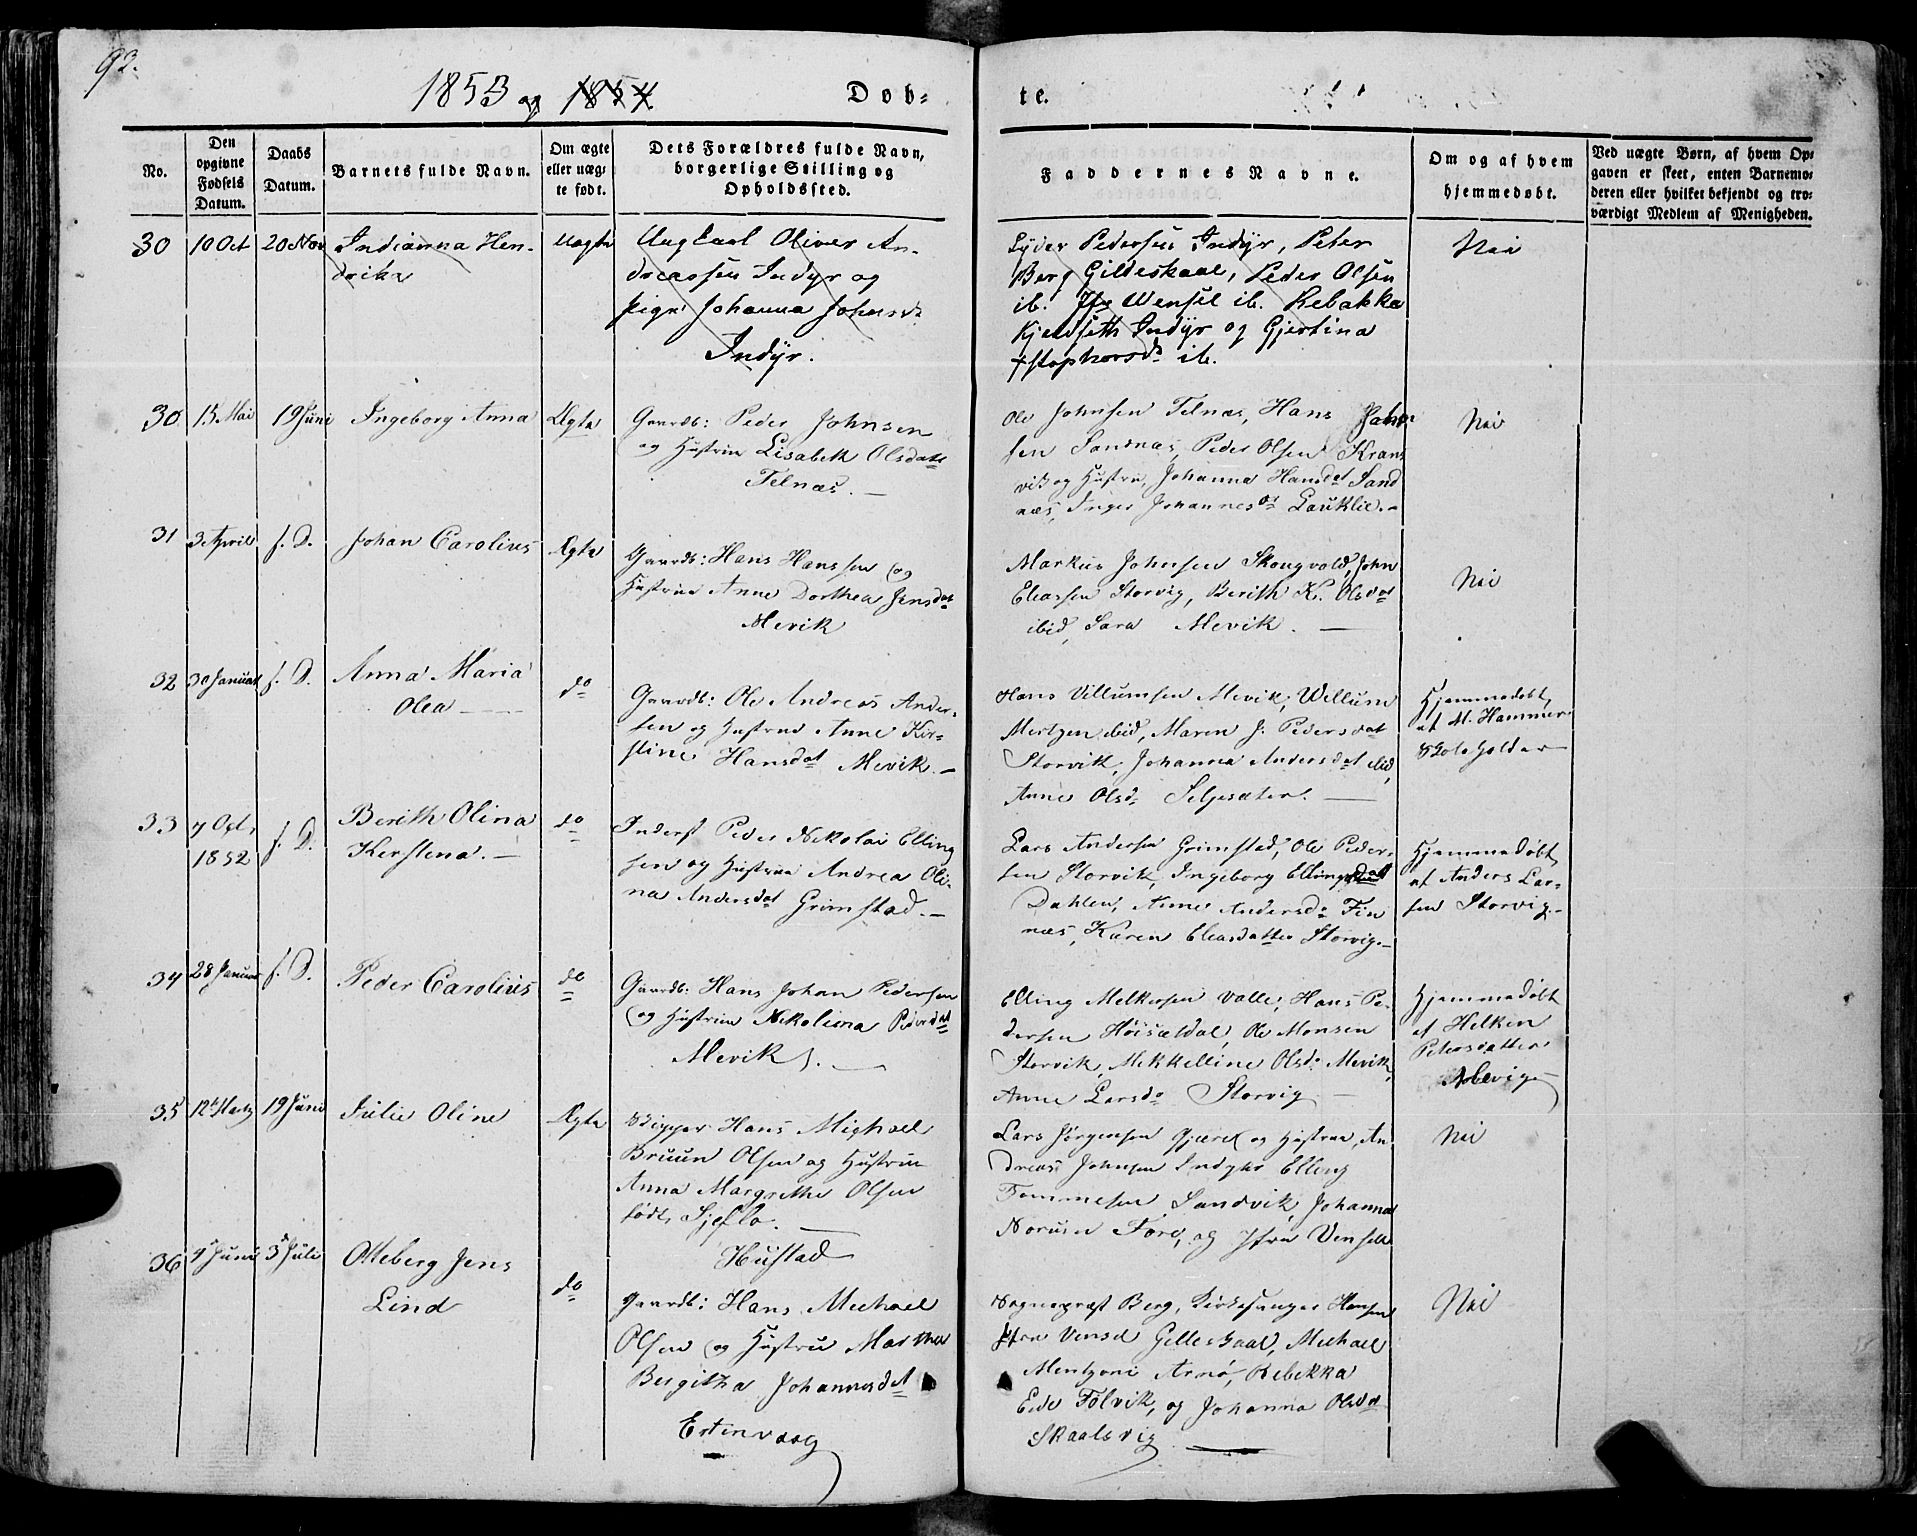 92.
1853 og 1854
Døb-
te.
No.
Den opgivne Fødsels Datum.
Daabs Datum.
Barnets fulde Navn.
Om ægte eller uæg-te født.
Dets Forældres fulde Navn, borgerlige Stilling og Opholdssted.
Faddernes Navne.
Om og af hvem hjemmedøbt.
Ved uægte Børn, af hvem Op-gaven er skeet, enten Barnemo-deren eller hvilket bekjendt og tro-værdigt Medlem af Menigheden.
30 10 Oct 20 Nov Indianna Hen-
drika
Uægte
Ungkarl Oliver An-
dreassen Indyr og
pige Johanna Johansd
Indyr.
Lyder Pedersen Indyr, Peter
Berg Gildeskaal, Peder Olsen
ib. Jfr Wensel ib. Rebakka
Kjeldseth Indyr og Gjertina
Xstophersd ib.
Nei
30 15 Mai 19 Juni Ingeborg Anna Ægte
Gaardb: Peder Johnsen
og Hustrue Lisabeth Olsdatt
Telnæs. —
Ole Johnsen Telnæs, Hans John-
sen Sandnæs, Peder Olsen Krans
vik og Hustru, Johanna Hansdat Sand
næs, Inger Johannesd Lauklie. —
Nei
31 3 April f. D. Johan Carolius Ægte
Gaardb: Hans Hanssen og
Hustrue Anne Dorthea Jensdat
Mevik
Markus Johnsen Skougvold, John
Eleassen Storvig, Berith K. Olsdat
ibid, Sara Mevik. —
Nei
32 30 Januar f. D. Anna Maria
Olea —
do
Gaardb: Ole Andreas Ander-
sen og Hustrue Anne Kir-
stine Hansdat Mevik. —
Hans Villumsen Mevik, Willum
Mertzen ibid, Maren J. Pedersdat
Storvik, Johanna Andersdat ibid,
Anne Olsd Selsæter. —
Hjemmedøbt
af M. Hammer
Skoleholder
33 7 Oct, 1852 f. D. Berith Olina
Kerstena. —
do
Inderst Peder Nikolai Elling
sen og Hustrue Andrea Oli-
na Andersdat Grimstad. —
Lars Andersen Grimstad, Ole Peder-
sen Storvik, Ingeborg Ellingsdatt
Dahlen, Anne Andersd Fin
næs, Karen Eleasdatter Storvig. —
Hjemmedøbt
af Anders Lar-
sen Storvig. —
34 28 Januar f. D. Peder Carolius do
Gaardb: Hans Johan Pedersen
og Hustrue Nikolina Pedersdat
Mevik. —
Elling Melkersen Valle, Hans Pe-
dersen Høisældal, Ole Monsen
Storvik, Mekkelline Olsd Mevik,
Anne Larsd Storvig —
Hjemmedøbt
af Helken
Petersdatter
35 12t Martz 19 Juni Julie Oline Ægte
Skipper Hans Michael
Bruun Olsen og Hustrue
Anna Margrethe Olsen
født Sjeflo. —
Hustad
Lars Jørgensen Gjæret og Hustrue, An-
dreas Johnsen Indyhr Elling
Tommesen Sandvik, Johanna
Norum Fore, og Jfru Vensell
Nei
36 4 Juni 3 Juli Otteberg Jens
Lind
do
Gaardb: Hans Michael
Olsen og Hustru Martha
Bergitha Johannesdat
Estenvaag
Sognepræst Berg, Kirkesanger Hansen
Jfru Vensel Gilleskaal, Michael
Mentzoni Arnø, Rebekka
Eide Følvik, og Johanna Olsdat
Skaalsvig
Nei